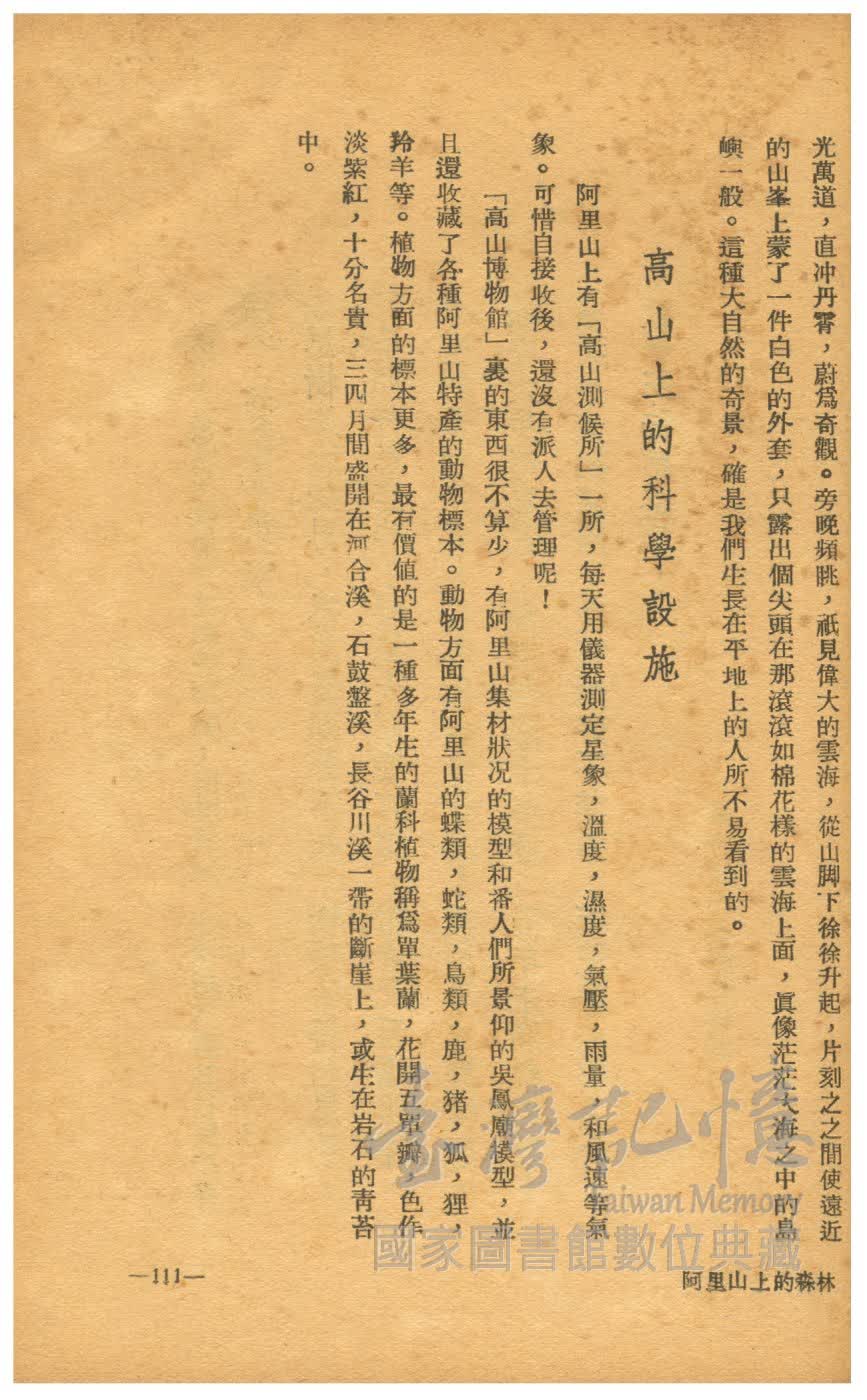 光萬道，直冲丹霄，蔚爲奇觀。旁晚頻眺，祇見偉大的雲海，從山脚下徐徐升起，片刻之之間使遠近
的山峯上蒙了一件白色的外套，只露出個尖頭在那滾滾如棉花樣的雲海上面，眞像茫茫大海之中的島
嶼一般。這種大自然的奇景，確是我們生長在平地上的人所不易看到的。
高山上的科學設施
阿里山上有「高山測候所」一所，每天用儀器測定星象，溫度，濕度，氣壓，雨量，和風速等氣
象。可惜自接收後，還沒有派人去管理呢！
「高山博物館」裏的東西很不算少，有阿里山集材狀况的模型和番人們所景仰的吳鳳廟模型，並
且還收藏了各種阿里山特產的動物標本。動物方面有阿里山的蝶類，蛇類，鳥類，鹿，猪，狐，狸，
羚羊等。植物方面的標本更多，最有價値的是一種多年生的蘭科植物稱爲單葉蘭，花開五單瓣，色作
淡紫紅，十分名貴，三四月間盛開在河合溪，石鼓盤溪，長谷川溪一帶的斷崖上，或生在岩石的靑苔
中。
臺灣記憶
Taiwan Memory
國家圖書館數位典藏
阿里山上的森林
—111—